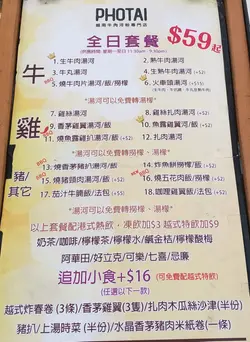 PHOTAI
越南牛肉河粉專門店
全日套餐
$59起
牛
1. 生牛肉湯河
2. 熟牛肉湯河
3. 牛丸湯河
4. 生熟牛肉湯河 (+$2)
5. 燒牛肉片湯河/飯/撈檬
6. 火車頭湯河 (+$5)
*湯河可以免費轉湯檬*
雞
7. 雞絲湯河
8. 雞絲扎肉湯河 (+$2)
9. 香茅雞翼湯河/飯
10. 魚露雞翼湯河/飯 (+$2)
11. 燒魚露雞扒湯河/飯 (+$2)
12. 扎肉湯河
*湯河可以免費轉撈檬、湯檬*
豬/其它
13. 燒香茅豬扒湯河/飯
14. 炸魚餅撈檬/飯 (+$2)
15. 燒豬頸肉湯河/飯 (+$2)
16. 燒五花肉飯/撈檬 (+$2)
17. 茄汁牛腩飯/法包 (+$5)
18. 咖喱雞翼飯/法包 (+$2)
*湯河可以免費轉撈檬、湯檬*
以上套餐配港式熱飲，凍飲加$3 越式特飲加$9
奶茶/咖啡/檸檬茶/檸檬水/鹹金桔/檸檬酸梅
阿華田/好立克/可樂/七喜/忌廉
追加小食+$16 (可免費配越式特飲)
(任選以下一款)
越式炸春卷 (3條)/香茅雞翼(3隻)/扎肉木瓜絲沙津 (半份)
豬扒/上湯時菜 (半份)/水晶香茅豬肉米紙卷(一條)